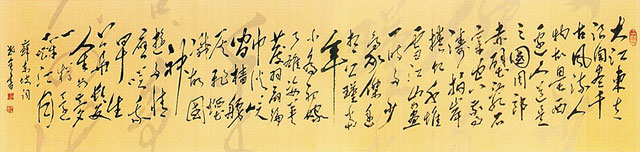 大江東去
浪淘盡千
古風流人
物故壘西
邊人道是
三國周郎
赤壁亂石
穿空驚
濤拍岸
捲起千堆
雪江山如畫
一時多少
豪傑遙
想公瑾當
年
小喬初嫁
了雄姿英
發羽扇綸
巾談笑
間檣櫓
灰飛煙
滅故國
神
遊多情
應笑我
早生
華髮
人生如夢
一樽還
酹江月
蘇東坡詞